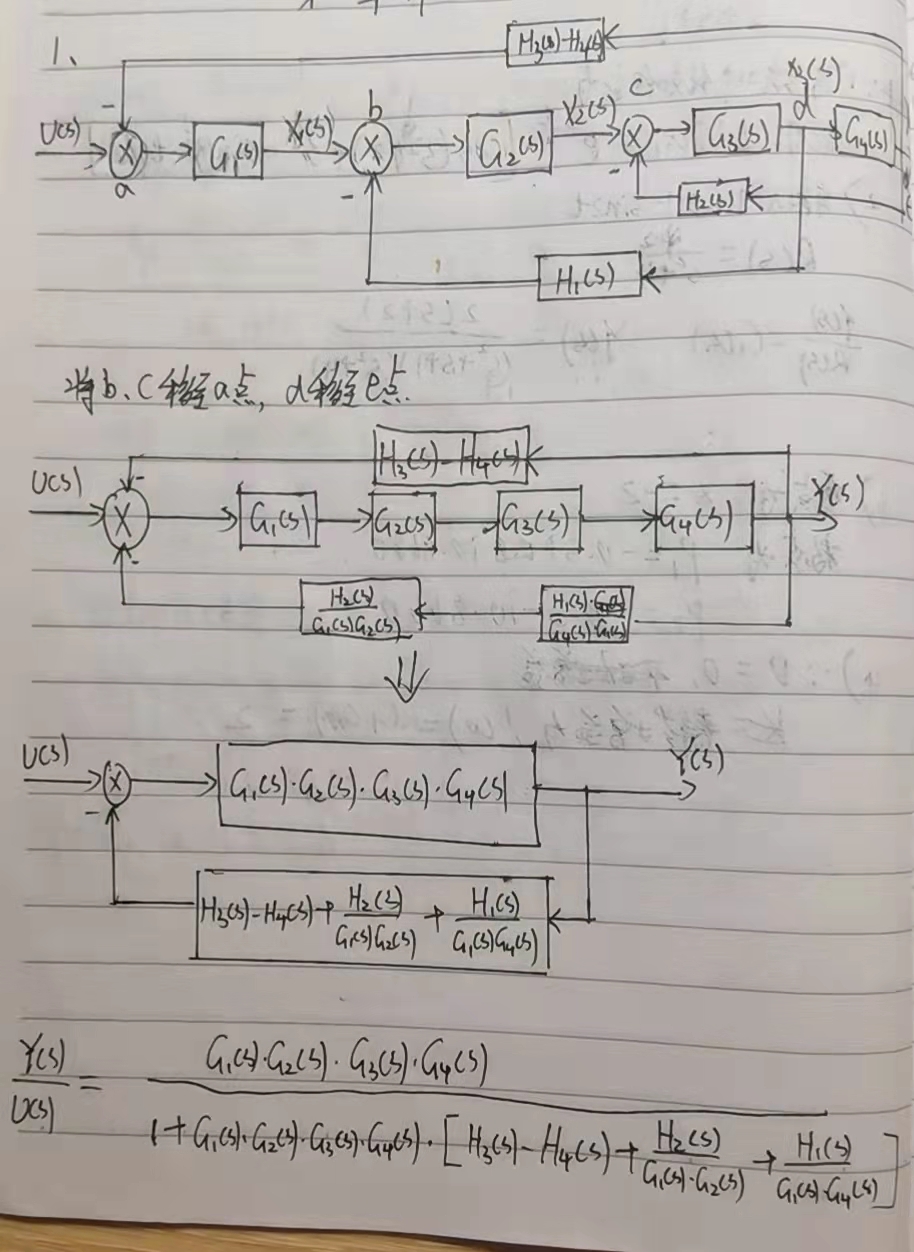 1、
H3(s)-H4(s)
U(s) - X a G1(s) X1(s) b X - G2(s) X2(s) c X - G3(s) X3(s) d G4(s)
H2(s)
H1(s)
将b、C移至a点, d移至e点.
H3(s)-H4(s)
U(s) - X - G1(s) G2(s) G3(s) G4(s) Y(s)
H2(s)/G1(s)G2(s) H1(s)/G4(s)·G1(s)
⇓
U(s) X - G1(s)·G2(s)·G3(s)·G4(s) Y(s)
H3(s)-H4(s)+H2(s)/G1(s)G2(s)+H1(s)/G1(s)G4(s)
Y(s)/U(s) = G1(s)·G2(s)·G3(s)·G4(s)
1+G1(s)·G2(s)·G3(s)·G4(s)·[H3(s)-H4(s)+H2(s)/G1(s)·G2(s)+H1(s)/G1(s)·G4(s)]